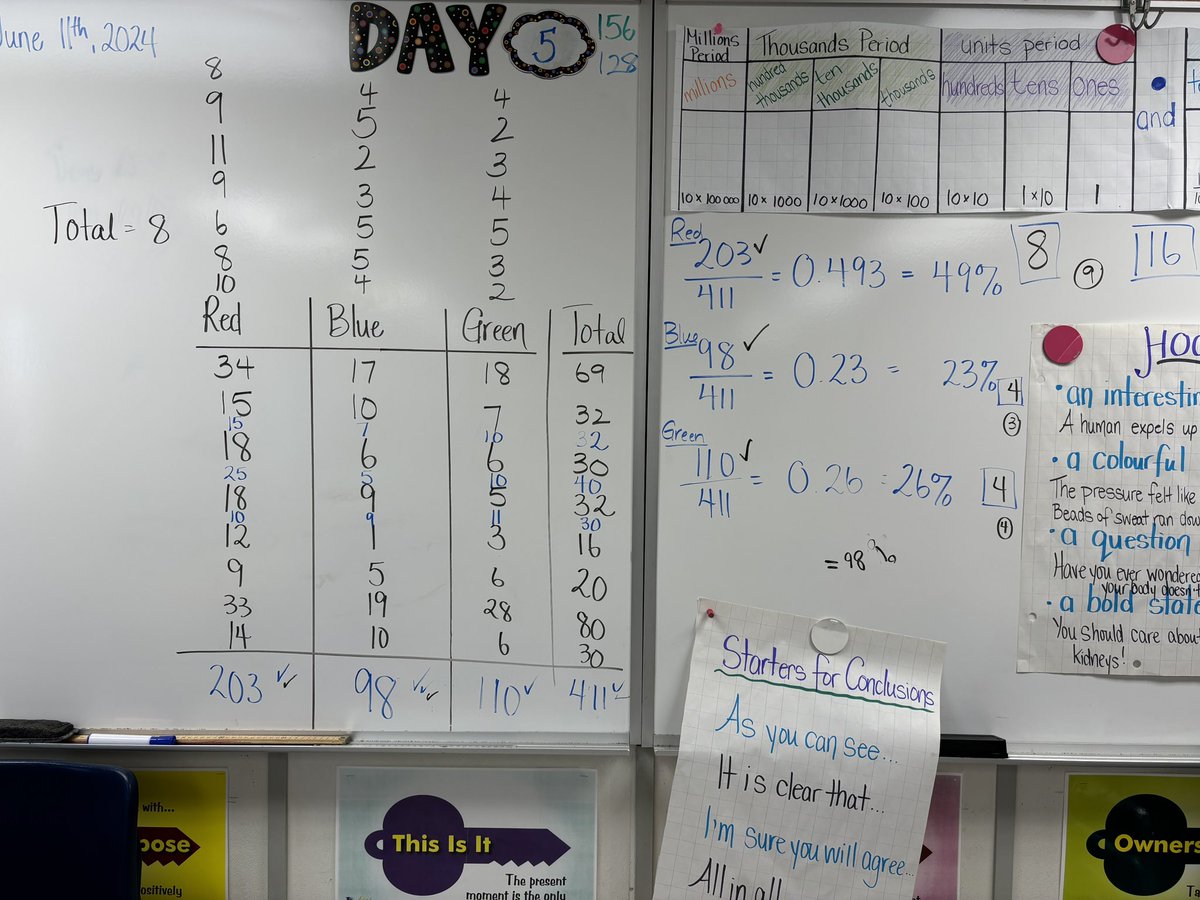 June 11th, 2024
DAY 5 156
128
8
9 4 4
11 5 2
9 2 3
6 3 4
Total = 8
8 5 5
10 5 3
4 2
Red Blue Green Total
34 17 18 69
15 10 7 32
15 7 10 32
18 6 6 30
25 5 10 40
18 9 5 32
10 9 11 30
12 1 3 16
9 5 6 20
33 19 28 80
14 10 6 30
203 ✓✓ 98 ✓✓✓ 110 ✓ 411 ✓
Millions Period Thousands Period units period
millions hundred thousands ten thousands thousands hundreds tens ones • and
10 x 100 000 10 x 1000 10 x 1000 10 x 100 10 x 10 1 x 10 1
Red
203 ✓
411
= 0.493 = 49% 8 9 116
Blue
98 ✓
411
= 0.23 = 23% 4
3
Green
110 ✓
411
= 0.26 = 26% 4
4
= 98%
• an interestin
A human expels up
• a colourful
The pressure felt like
Beads of sweat ran dow
• a question
Have you ever wondered
your body doesn't
• a bold state
You should care about
kidneys!
Starters for Conclusions
As you can see...
It is clear that...
I'm sure you will agree...
All in all
with...
pose
ositively
This Is It
The present
moment is the only
Owners